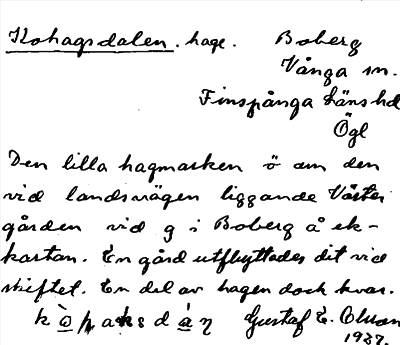 Kohagsdalen. hage. Boberg
Vånga sn.
Finspånga läns hd
Ögl
Den lilla hagmarken ö om den
vid landsvägen liggande Väster
gården vid g i Boberg å ek-
kartan. En gård utflyttades dit vid
skiftet. En del av hagen dock kvar.
Gustaf E. Olsson
1937.